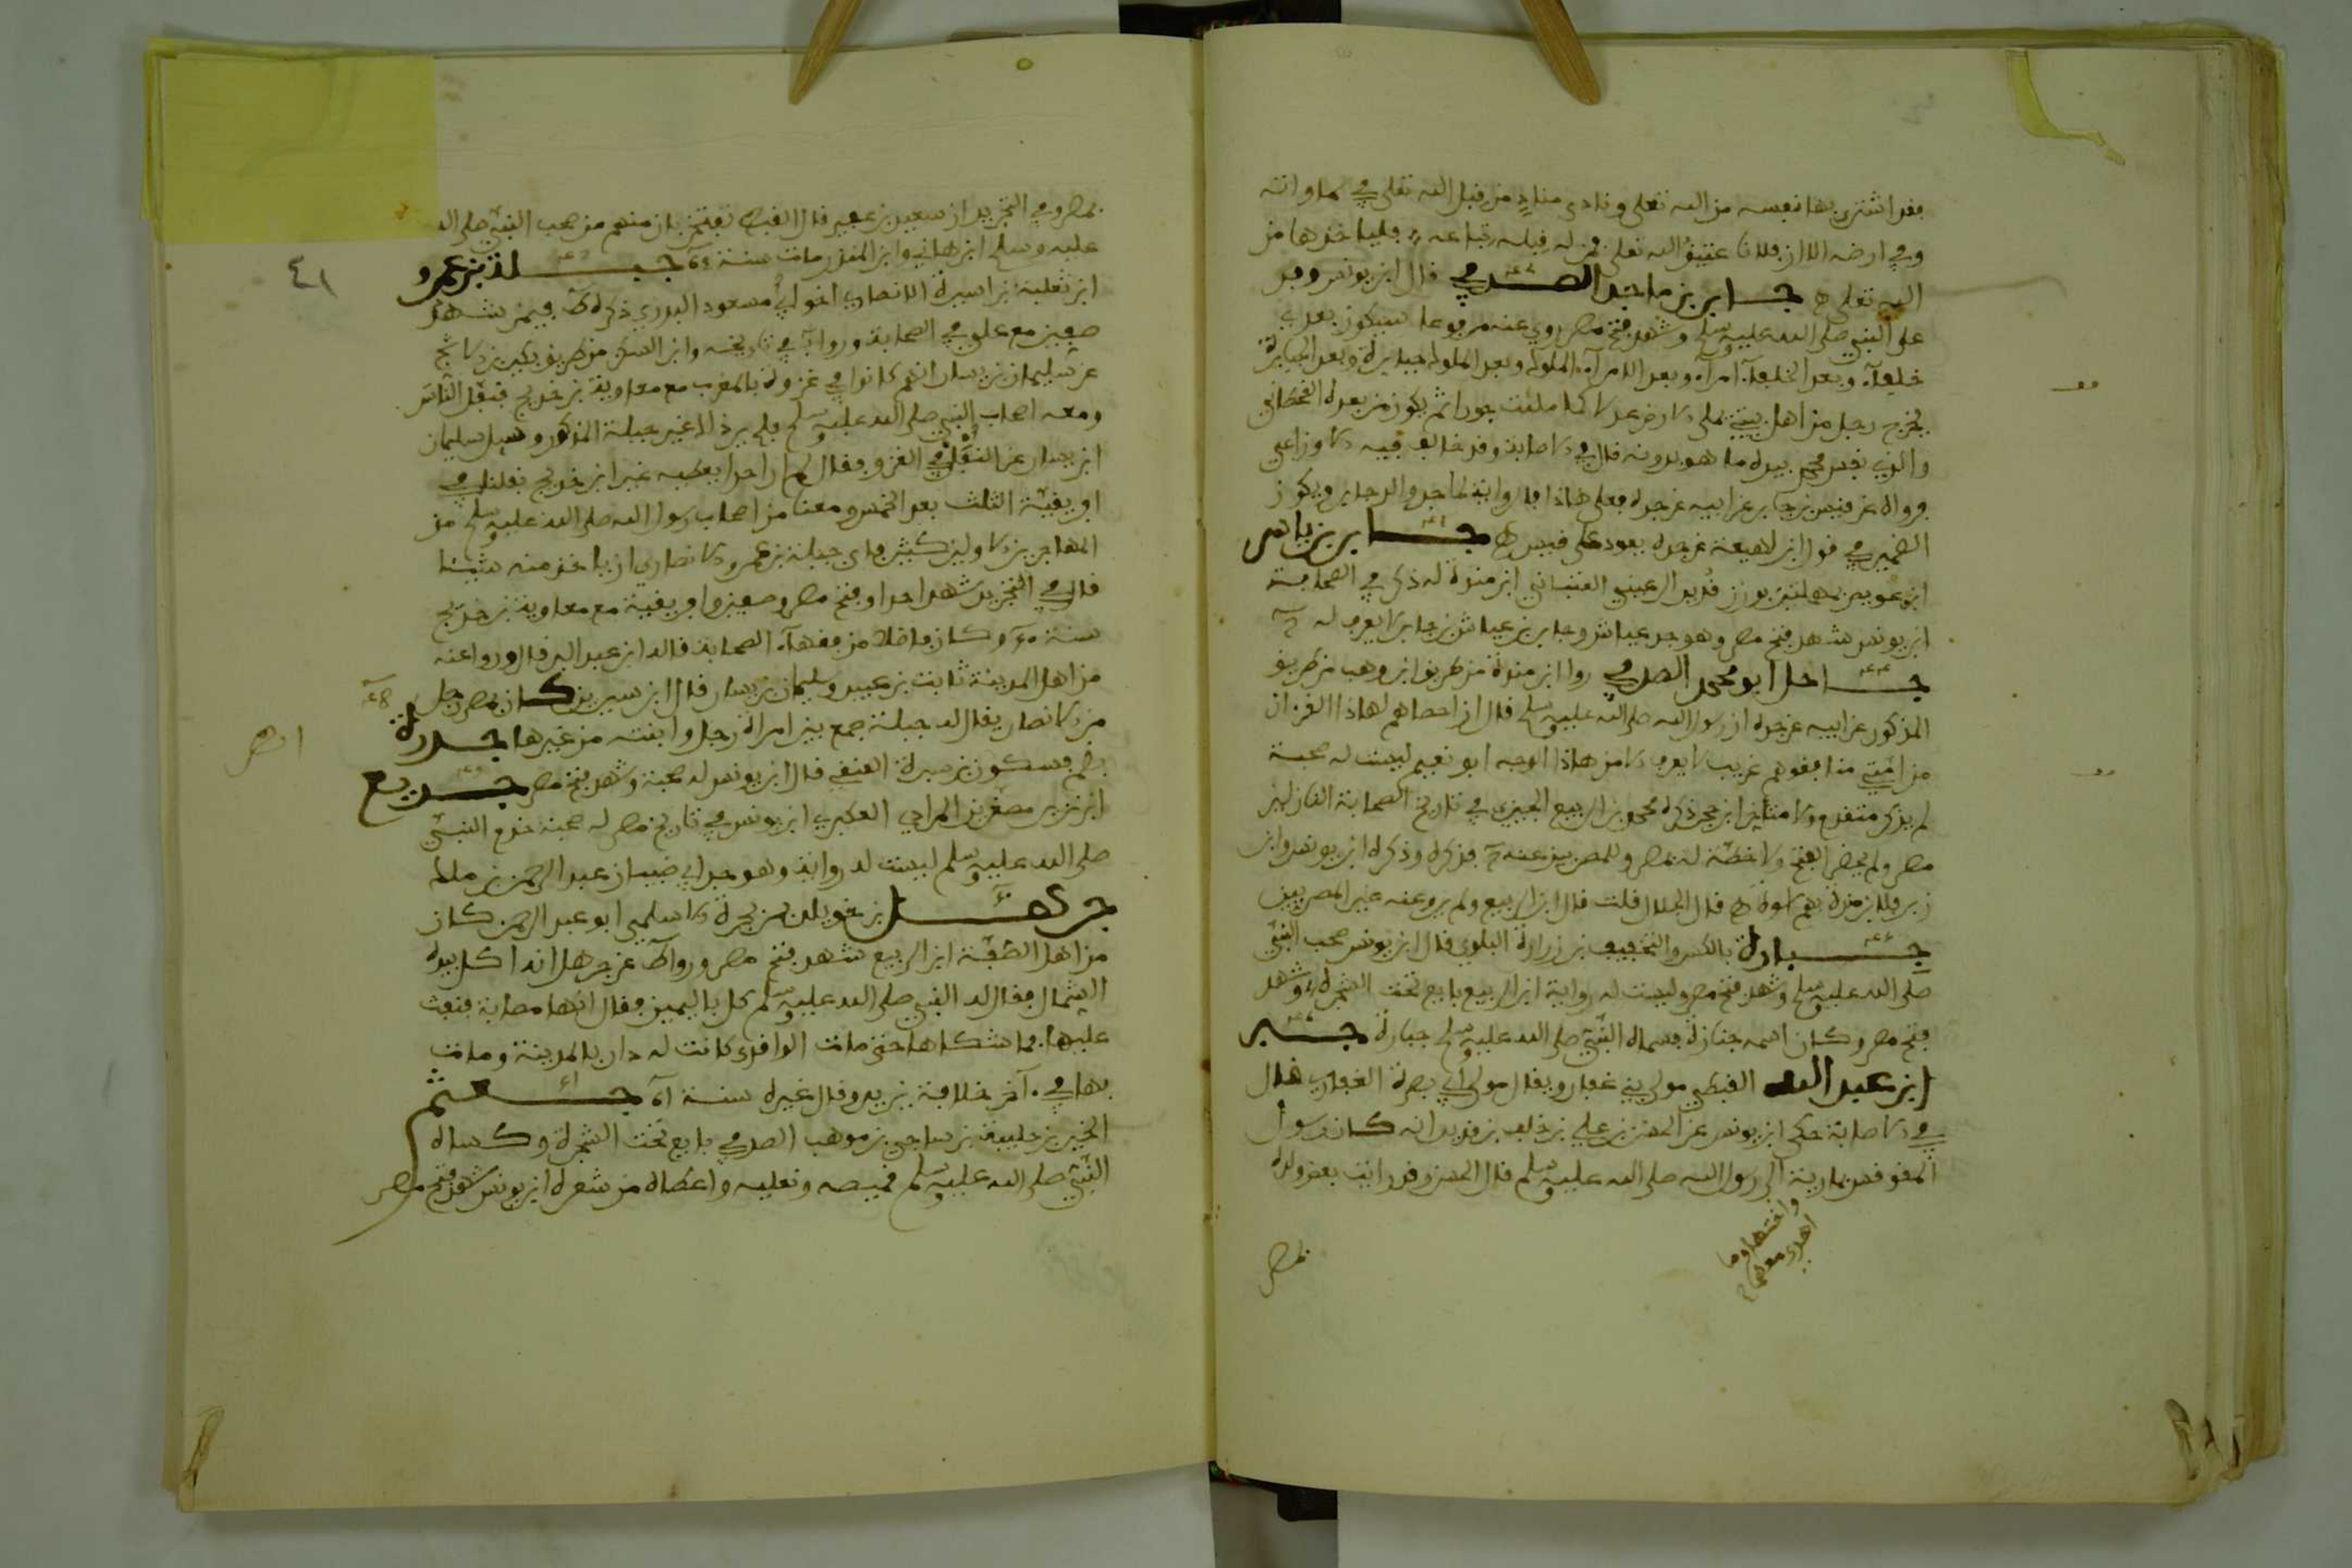 فقد اشترى بها نفسه من الله تعلى ونادى منادٍ من قبل الله تعلى في سماواته
وفي ارضه الا ان فلانا عتيق الله تعلى فمن له قبله تباعة فلياخذها من
الله تعلى ه جابر بن ماجد الصدفي قال ابن يونس وفد
على النبي صلى الله عليه وسلم وشهد فتح مصر روي عنه مرفوعا سيكون بعدي
خلفآء وبعد الخلفآء امرآء وبعد الامرآء الملوك وبعد الملوك جبابرة وبعد الجبابرة
يخرج رجل من اهل بيتي يملى الارض عدلا كما ملئت جورا ثم يكون من بعده القحطاني
والذي نفس محمد بيده ما هو بدونه قال في الاصابة وقد خالف فيه الاوزاعي
فرواه عن قيس بن جابر عن ابيه عن جده فعلى هاذا فالرواية لماجد والد جابر ويكون
الضمير في قول ابن لاهيعة عن جده يعود على قيس ه جابر بن ياسر
ابن عويص بمهملتين بوزن قدير الرعيني القتباني ابن مندة له ذكر في الصحابة
ابن يونس شهد فتح مصر وهو جد عياش وجابر بن عياش بن جابر لا يعرف له
جاحل ابو محمد الصدفي روا ابن مندة من طريق ابن وهب من طريق
المذكور عن ابيه عن جده ان رسول الله صلى الله عليه وسلم قال ان احصاهم لهاذا القرءان
من امتي منافقوهم غريب لا يعرف الا من هاذا الوجه ابو نعيم ليست له صحبة
لم يذكر متقدم ولا متاخر ابن حجر ذكره محمد بن الربيع الجيزي في تاريخ الصحابة النازلين
مصر ولم يحضر الفتح ولا خطة له بمصر وللمصريين عنه فذكره وذكره ابن يونس وابن
زبر فلابن مندة بهم اسوة ه قال الجلال قلت قال ابن الربيع ولم يرو عنه غير المصريين
جبارة بالكسر والتخفيف بن زرارة البلوي قال ابن يونس صحب النبي
صلى الله عليه وسلم وشهد فتح مصر وليست له رواية ابن الربيع بايع تحت الشجرة وشهد
فتح مصر وكان اسمه جنازة فسماه النبي صلى الله عليه وسلم جبارة جبر
ابن عبد الله القبطي مولى بني غفار ويقال مولى ابي بصرة الغفاري قال
في الاصابة حكى ابن يونس عن الحسن بن علي بن خلف بن قديد انه كان رسول
المقوقس بمارية الى رسول الله صلى الله عليه وسلم قال الحسن وقد رايت بعض ولده
واختها وما
اهدي معها
بمصر
٤١
بمصر وفي التجريد ان سعيد بن عفير قال القبط تفتخر بان منهم من صحب النبي صلى الله
عليه وسلم ابن هاني وابن المنذر مات سنة جبلة بن عمرو
ابن ثعلبة بن اسيرة الانصاري اخو ابي مسعود البدري ذكره فيمن شهد
صفين مع علي في الصحابة وروا في تاريخه وابن السكن من طريق بكير بن الاشج
عن سليمان بن يسار انهم كانوا في غزوة بالمغرب مع معاوية بن خديج فنفل الناس
ومعه اصحاب النبي صلى الله عليه وسلم فلم يرد ذالك غير جبلة المذكور وسيل سليمان
ابن يسار عن النفل في الغزو فقال لم ار احدا يعطيه غير ابن خديج نفلنا في
افريقية الثلث بعد الخمس ومعنا من اصحاب رسول الله صلى الله عليه وسلم من
المهاجرين الاولين كثير فابى جبلة بن عمرو الانصاري ان ياخذ منه شيئا
قال في التجريد شهد احدا وفتح مصر وصفين وافريقية مع معاوية بن خديج
سنة وكان فاضلا من فقهآء الصحابة قاله ابن عبد البر قال ورووا عنه
من اهل المدينة ثابت بن عبيد وسليمان بن يسار قال ابن سيرين كان بمصر رجل
من الانصار يقال له جبلة جمع بين امراة رجل وابنته من غيرها جدرة
بضم فسكون بن سبرة العتقي قال ابن يونس له صحبة وشهد فتح مصر جديع
ابن نذير مصغرين المرادي الكعبي ابن يونس في تاريخ مصر له صحبة خدم النبي
صلى الله عليه وسلم ليست له رواية وهو جد ابي ظبيان عبد الرحمن بن مالك
جرهد بن خويلد بن بجرة الاسلمي ابو عبد الرحمن كان
من اهل الصفة ابن الربيع شهد فتح مصر وروا عن جرهد انه اكل بيده
الشمال فقال له النبي صلى الله عليه وسلم كل باليمين فقال انها مصابة فنفث
عليها فما شكاها حتى مات الواقدي كانت له دار بالمدينة ومات
بها في آخر خلافة يزيد وقال غيره سنة جعثم
الخير بن خليبة بن ساجي بن موهب الصدفي بايع تحت الشجرة وكساه
النبي صلى الله عليه وسلم قميصه ونعليه واعطاه من شعره ابن يونس شهد فتح مصر